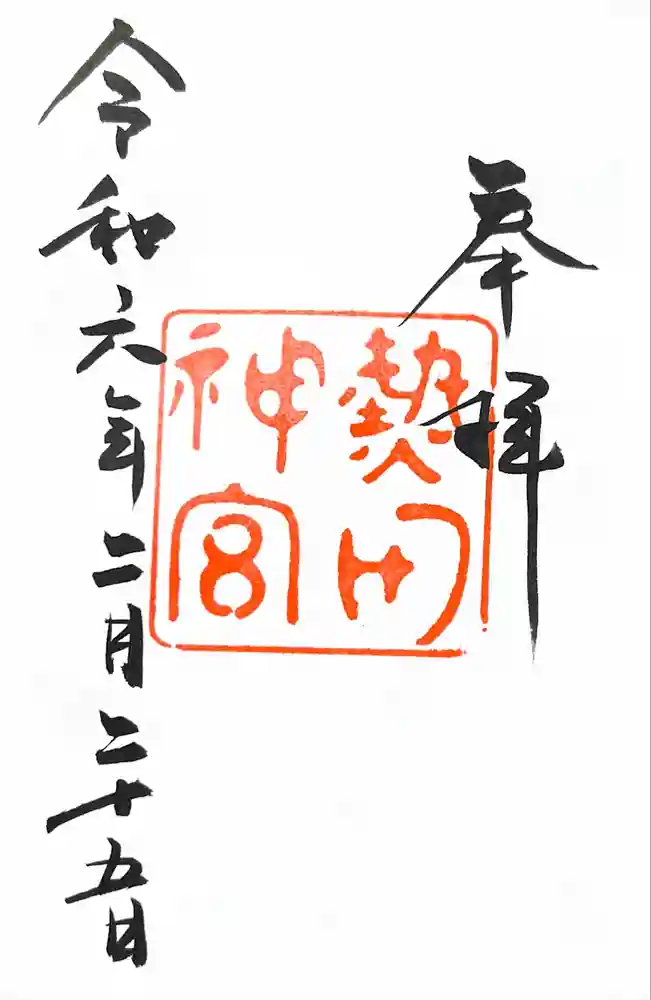 奉拝
熱田
神宮
令和六年二月二十五日